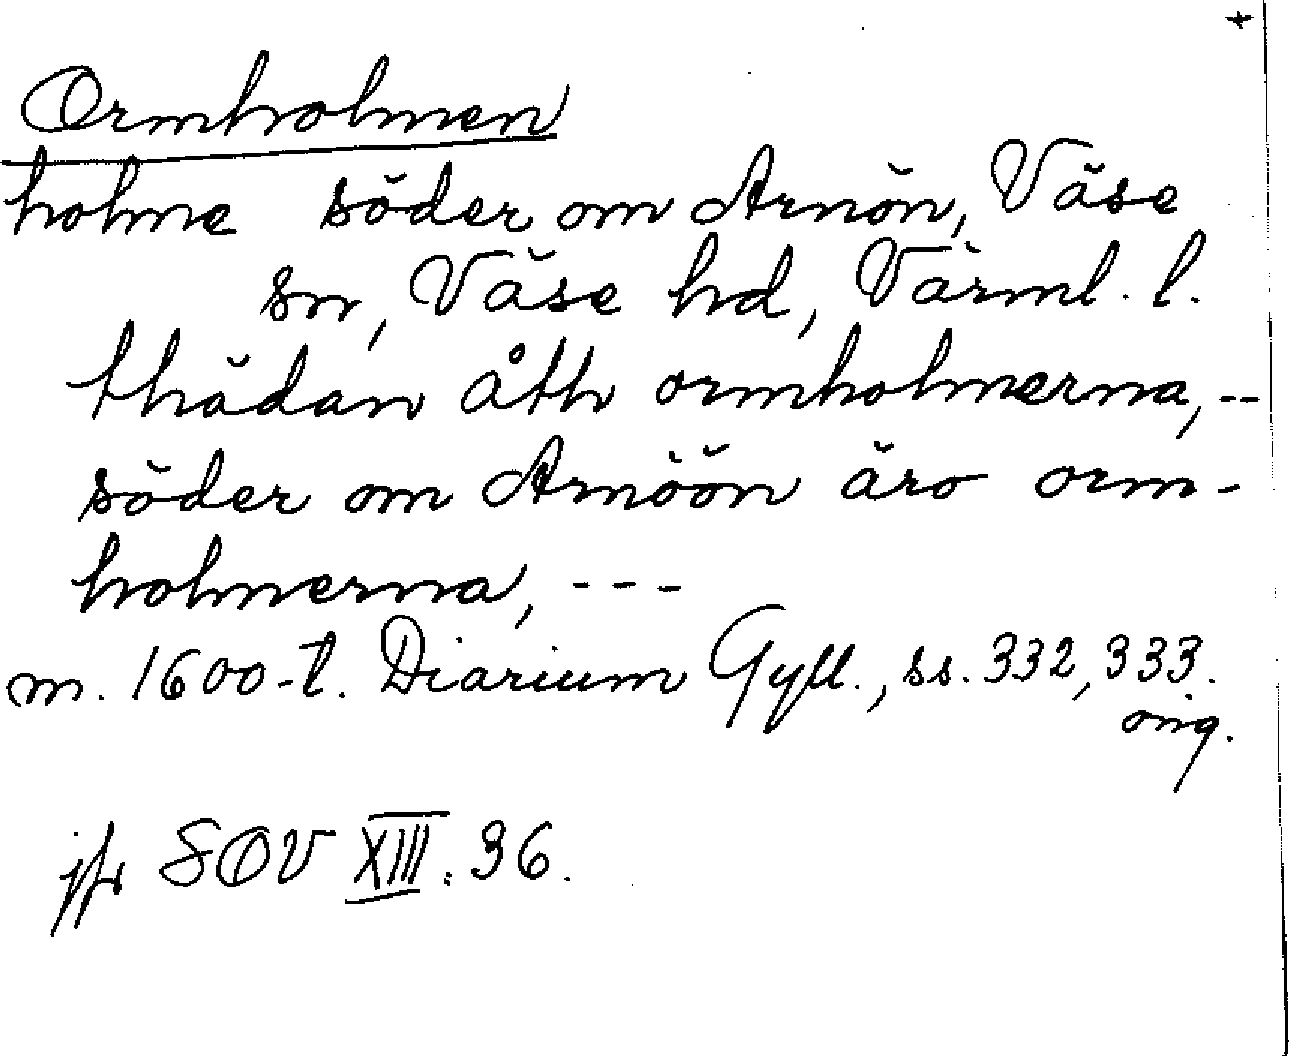 +
Ormholmen
holme söder om Arnön, Väse
sn, Väse hd, Värml. l.
thädan åth ormholmerna, --
söder om Arnöön äro orm-
holmerna, ---
m. 1600-t. Diarium Gyll., ss. 332, 333.
orig.
jfr SOV XIII: 36.